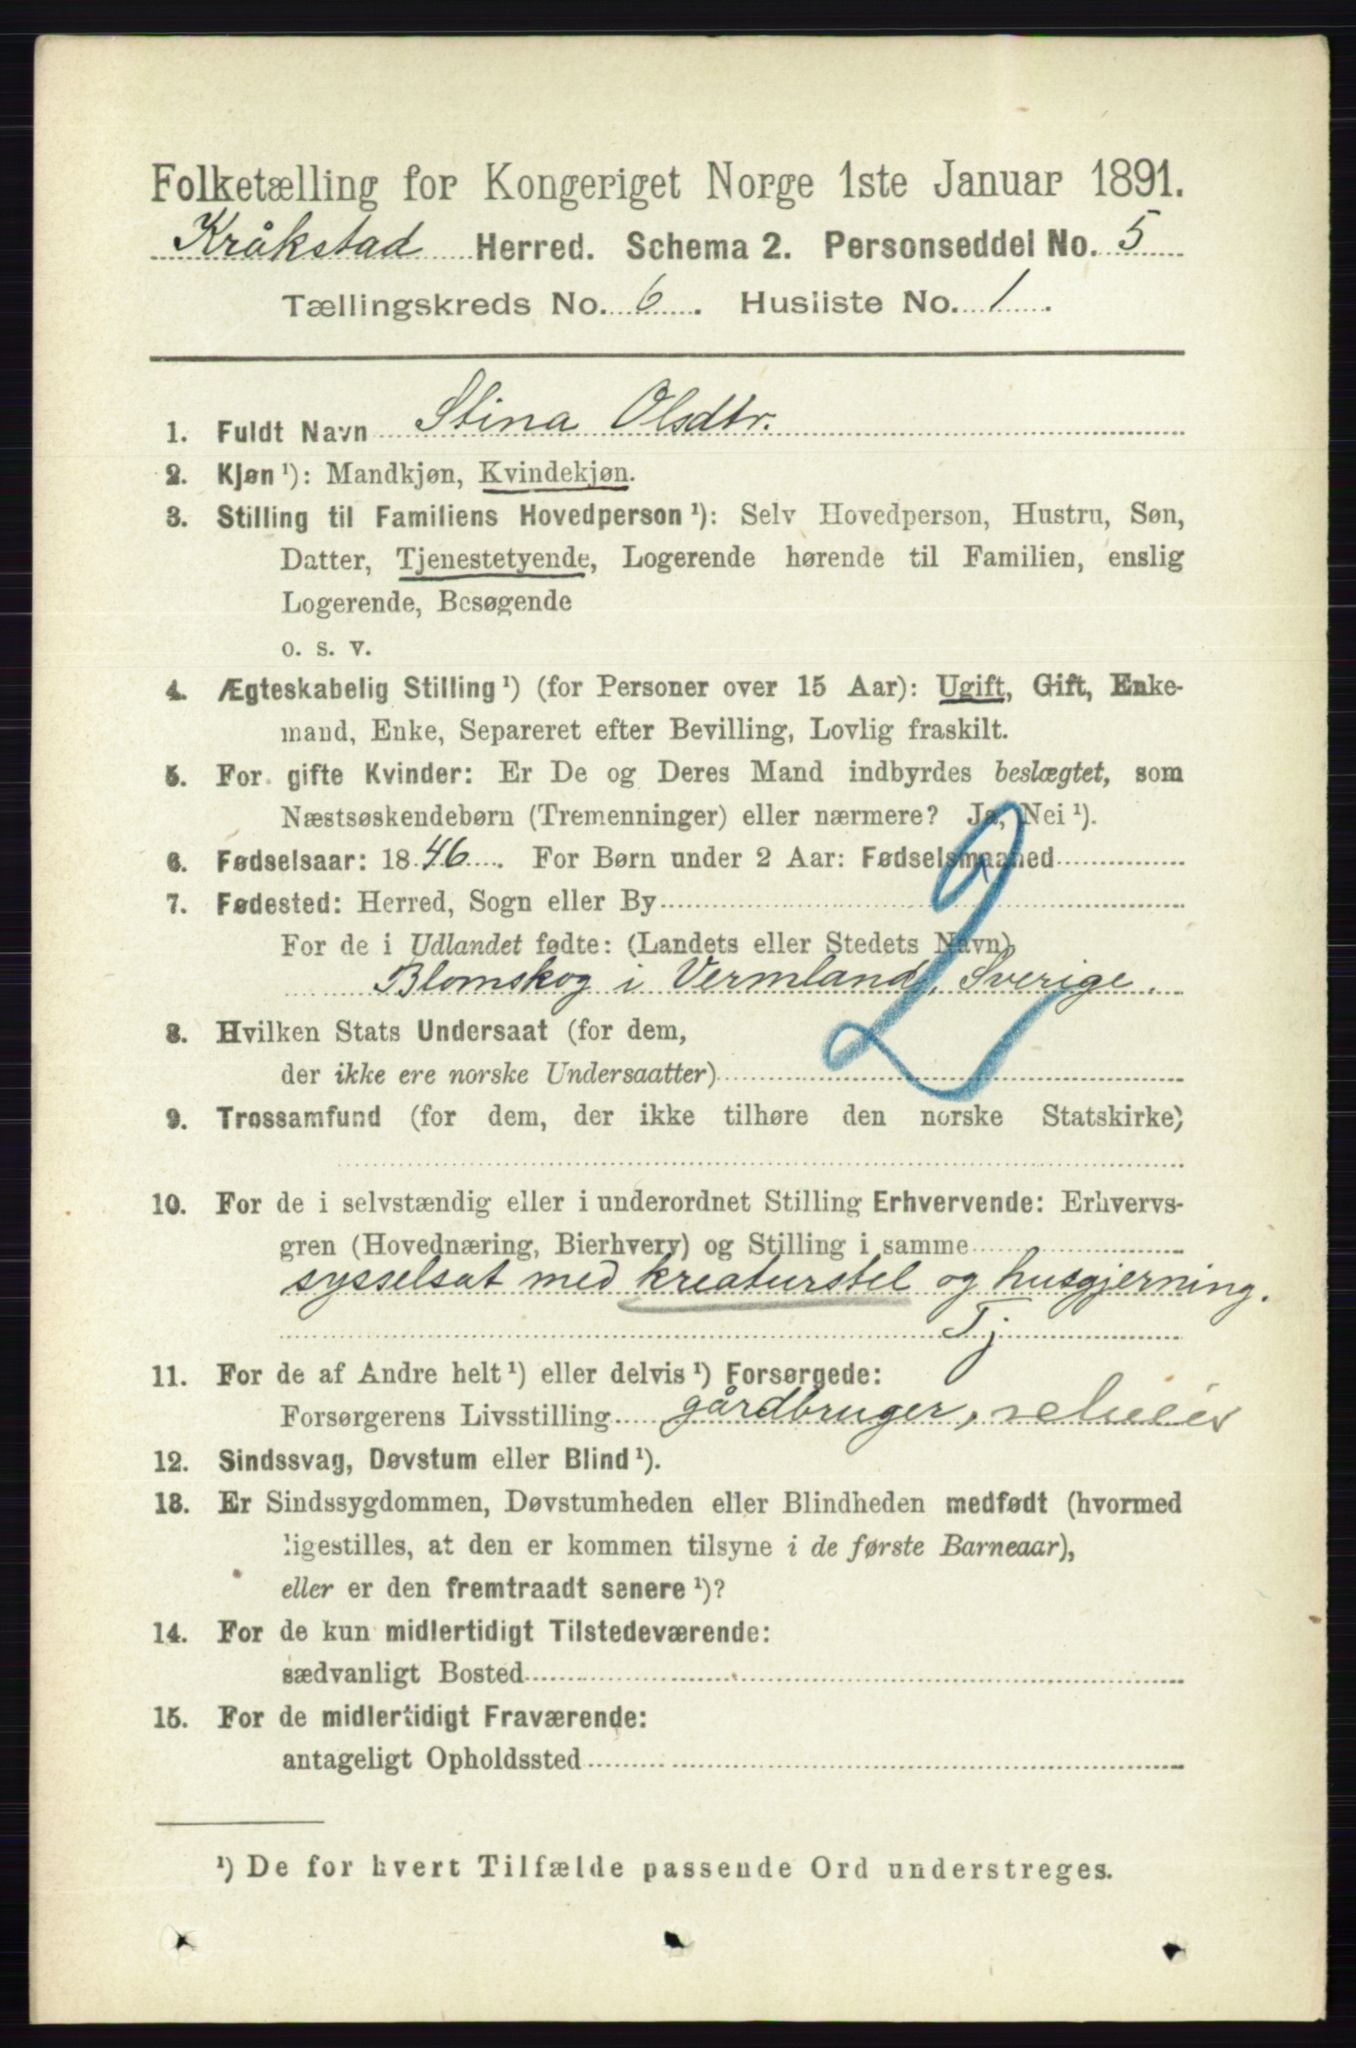 Folketælling for Kongeriget Norge 1ste Januar 1891.
Kråkstad Herred. Schema 2. Personseddel No. 5
Tællingskreds No. 6. Husliste No. 1.
1. Fuldt Navn Stina Olsdtr.
2. Kjøn ¹): Mandkjøn, Kvindekjøn.
3. Stilling til Familiens Hovedperson ¹): Selv Hovedperson, Hustru, Søn,
Datter, Tjenestetyende, Logerende hørende til Familien, enslig
Logerende, Besøgende
o. s. v.
4. Ægteskabelig Stilling ¹) (for Personer over 15 Aar): Ugift, Gift, Enke-
mand, Enke, Separeret efter Bevilling, Lovlig fraskilt.
5. For gifte Kvinder: Er De og Deres Mand indbyrdes beslægtet, som
Næstsøskendebørn (Tremenninger) eller nærmere? Ja, Nei ¹).
6. Fødselsaar: 1846. For Børn under 2 Aar: Fødselsmaaned
7. Fødested: Herred, Sogn eller By
For de i Udlandet fødte: (Landets eller Stedets Navn)
Blomskog i Vermland, Sverige.
2
8. Hvilken Stats Undersaat (for dem,
der ikke ere norske Undersaatter)
9. Trossamfund (for dem, der ikke tilhøre den norske Statskirke)
10. For de i selvstændig eller i underordnet Stilling Erhvervende: Erhvervs-
gren (Hovednæring, Bierhverv) og Stilling i samme
sysselsat med kreaturstel og husgjerning.
Tj
11. For de af Andre helt ¹) eller delvis ¹) Forsørgede:
Forsørgerens Livsstilling gårdbruger,
12. Sindssvag, Døvstum eller Blind ¹).
13. Er Sindssygdommen, Døvstumheden eller Blindheden medfødt (hvormed
ligestilles, at den er kommen tilsyne i de første Barneaar),
eller er den fremtraadt senere ¹)?
14. For de kun midlertidigt Tilstedeværende:
sædvanligt Bosted
15. For de midlertidigt Fraværende:
antageligt Opholdssted
¹) De for hvert Tilfælde passende Ord understreges.